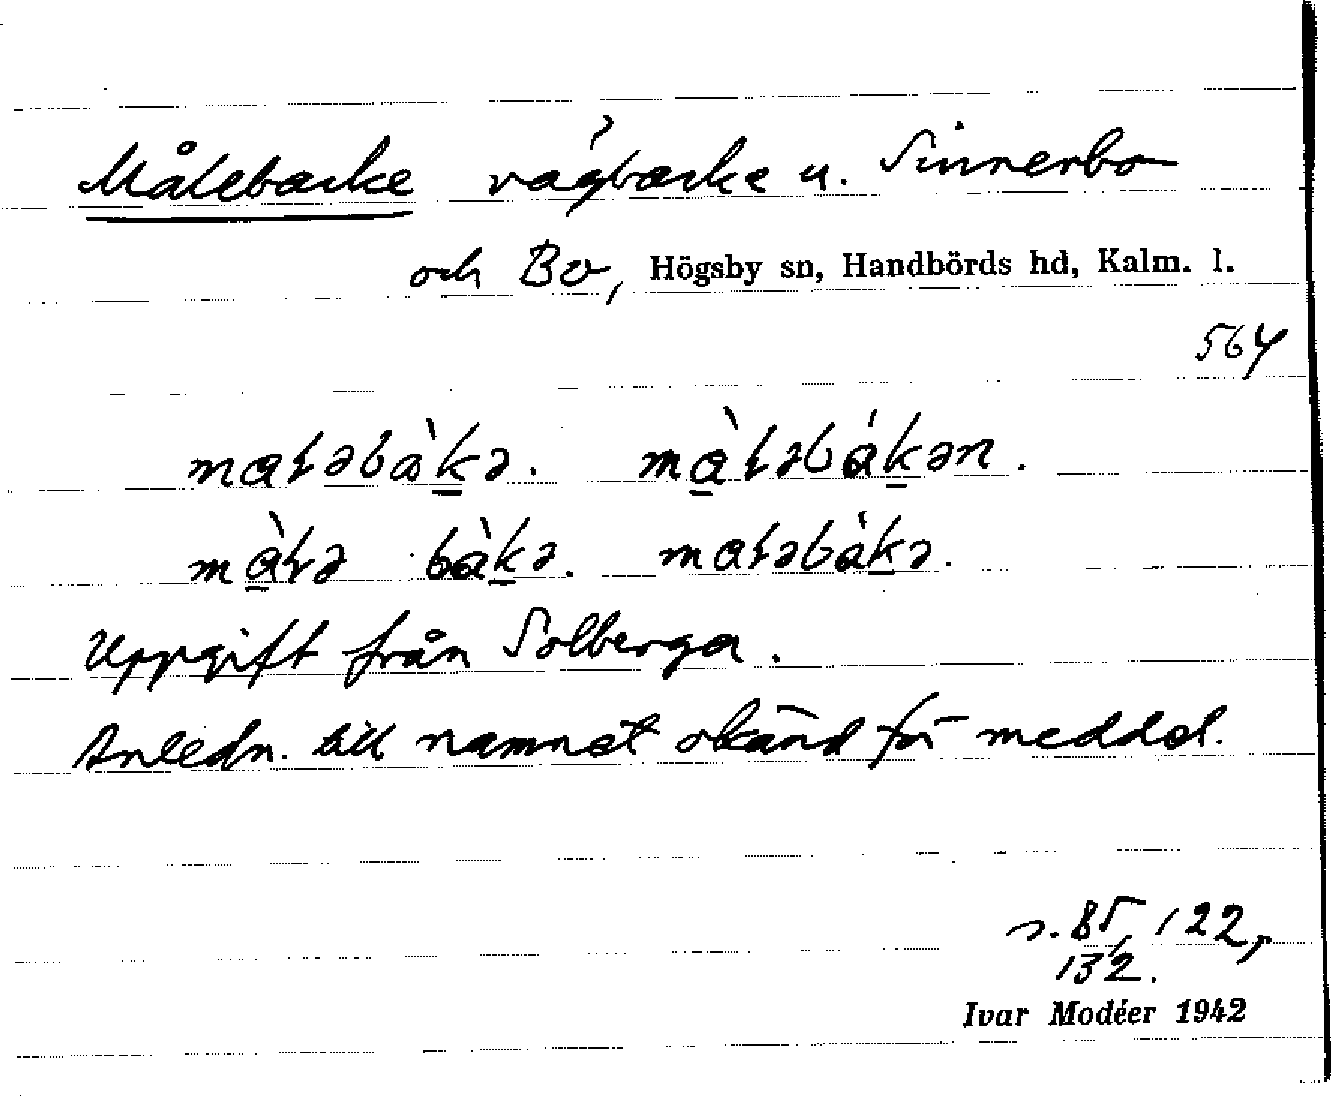 Målebacke vägbacke u. Sinnerbo
och Bo, Högsby sn, Handbörds hd, Kalm. l.
564
maɫəbàkə. màɫəbákən.
màɫə bàkə. maɫəbákə.
Uppgift från Solberga.
Anledn. till namnet okänd för meddel.
s. 85, 122,
132.
Ivar Modéer 1942